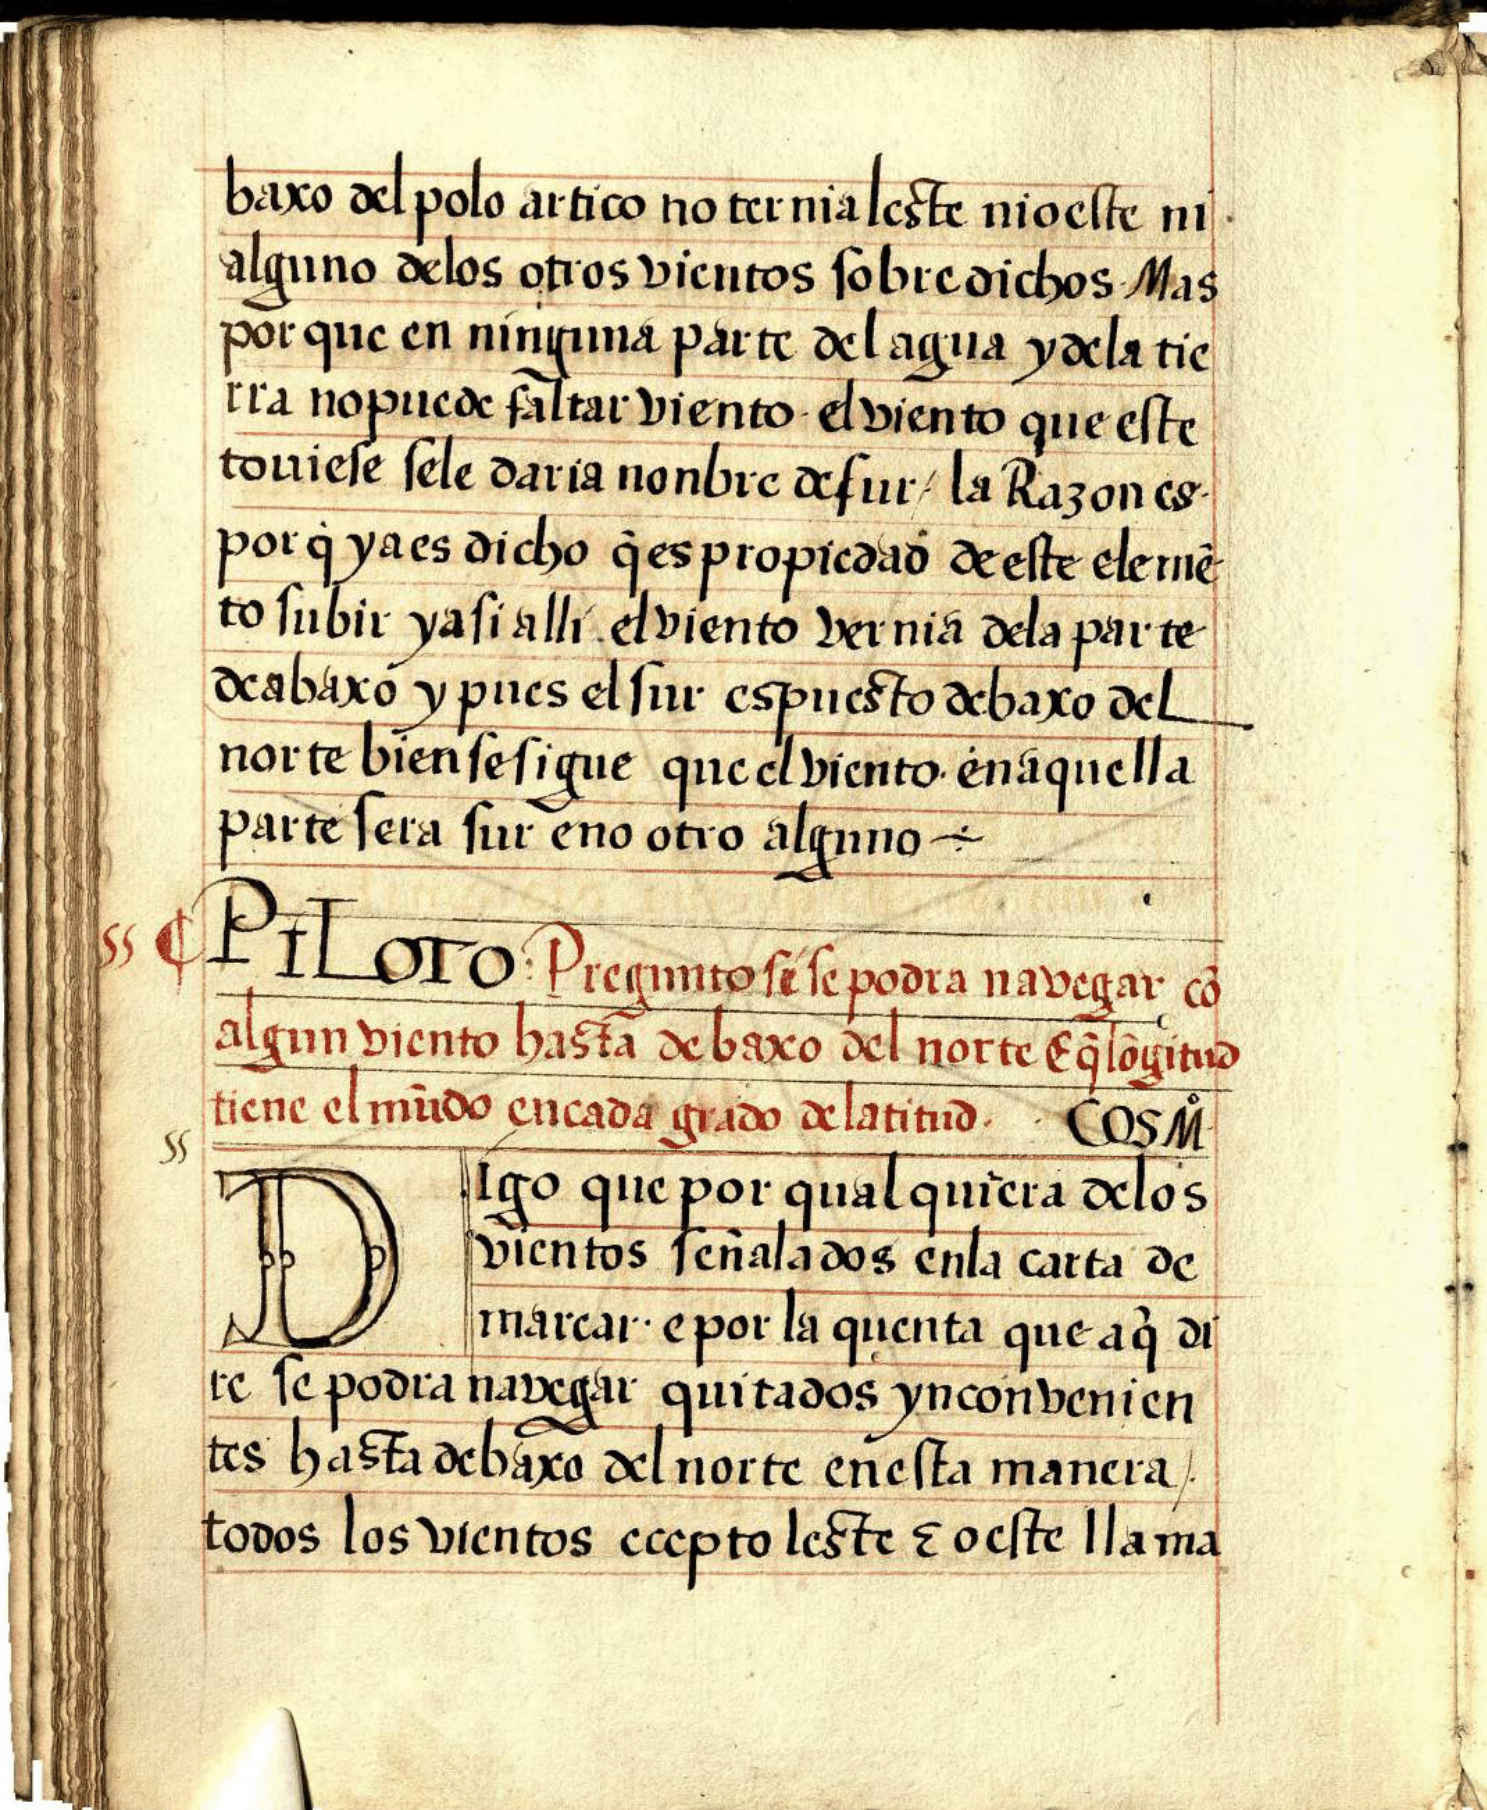 baxo del polo artico no ternia leste nioeste ni
alguno delos otros vientos sobredichos. Mas
por que en ninguna parte del agua y dela tie
rra no puede faltar viento. el viento que este
touiese sele daria nonbre de sur / la Razon es.
por q̇ ya es dicho q̃ es propiedad de este elemẽ
to subir y asi alli. el viento vernia dela parte
de abaxo y pues el sur es puesto debaxo del
norte bien se sigue que el viento. en aquella
parte sera sur e no otro alguno ÷
ss ¶ PILOTO: Pregunto si se podra navegar cõ
algun viento hasta debaxo del norte E q̃ lõgitud
tiene el mũdo en cada grado de latitud. COSMº
ss
DIgo que por qual quiera delos
vientos señalados enla carta de
marear. e por la quenta que aq̃ di
re se podra navegar quitados ynconvenien
tes hasta debaxo del norte en esta manera /.
todos los vientos ecepto leste ⁊ oeste llama